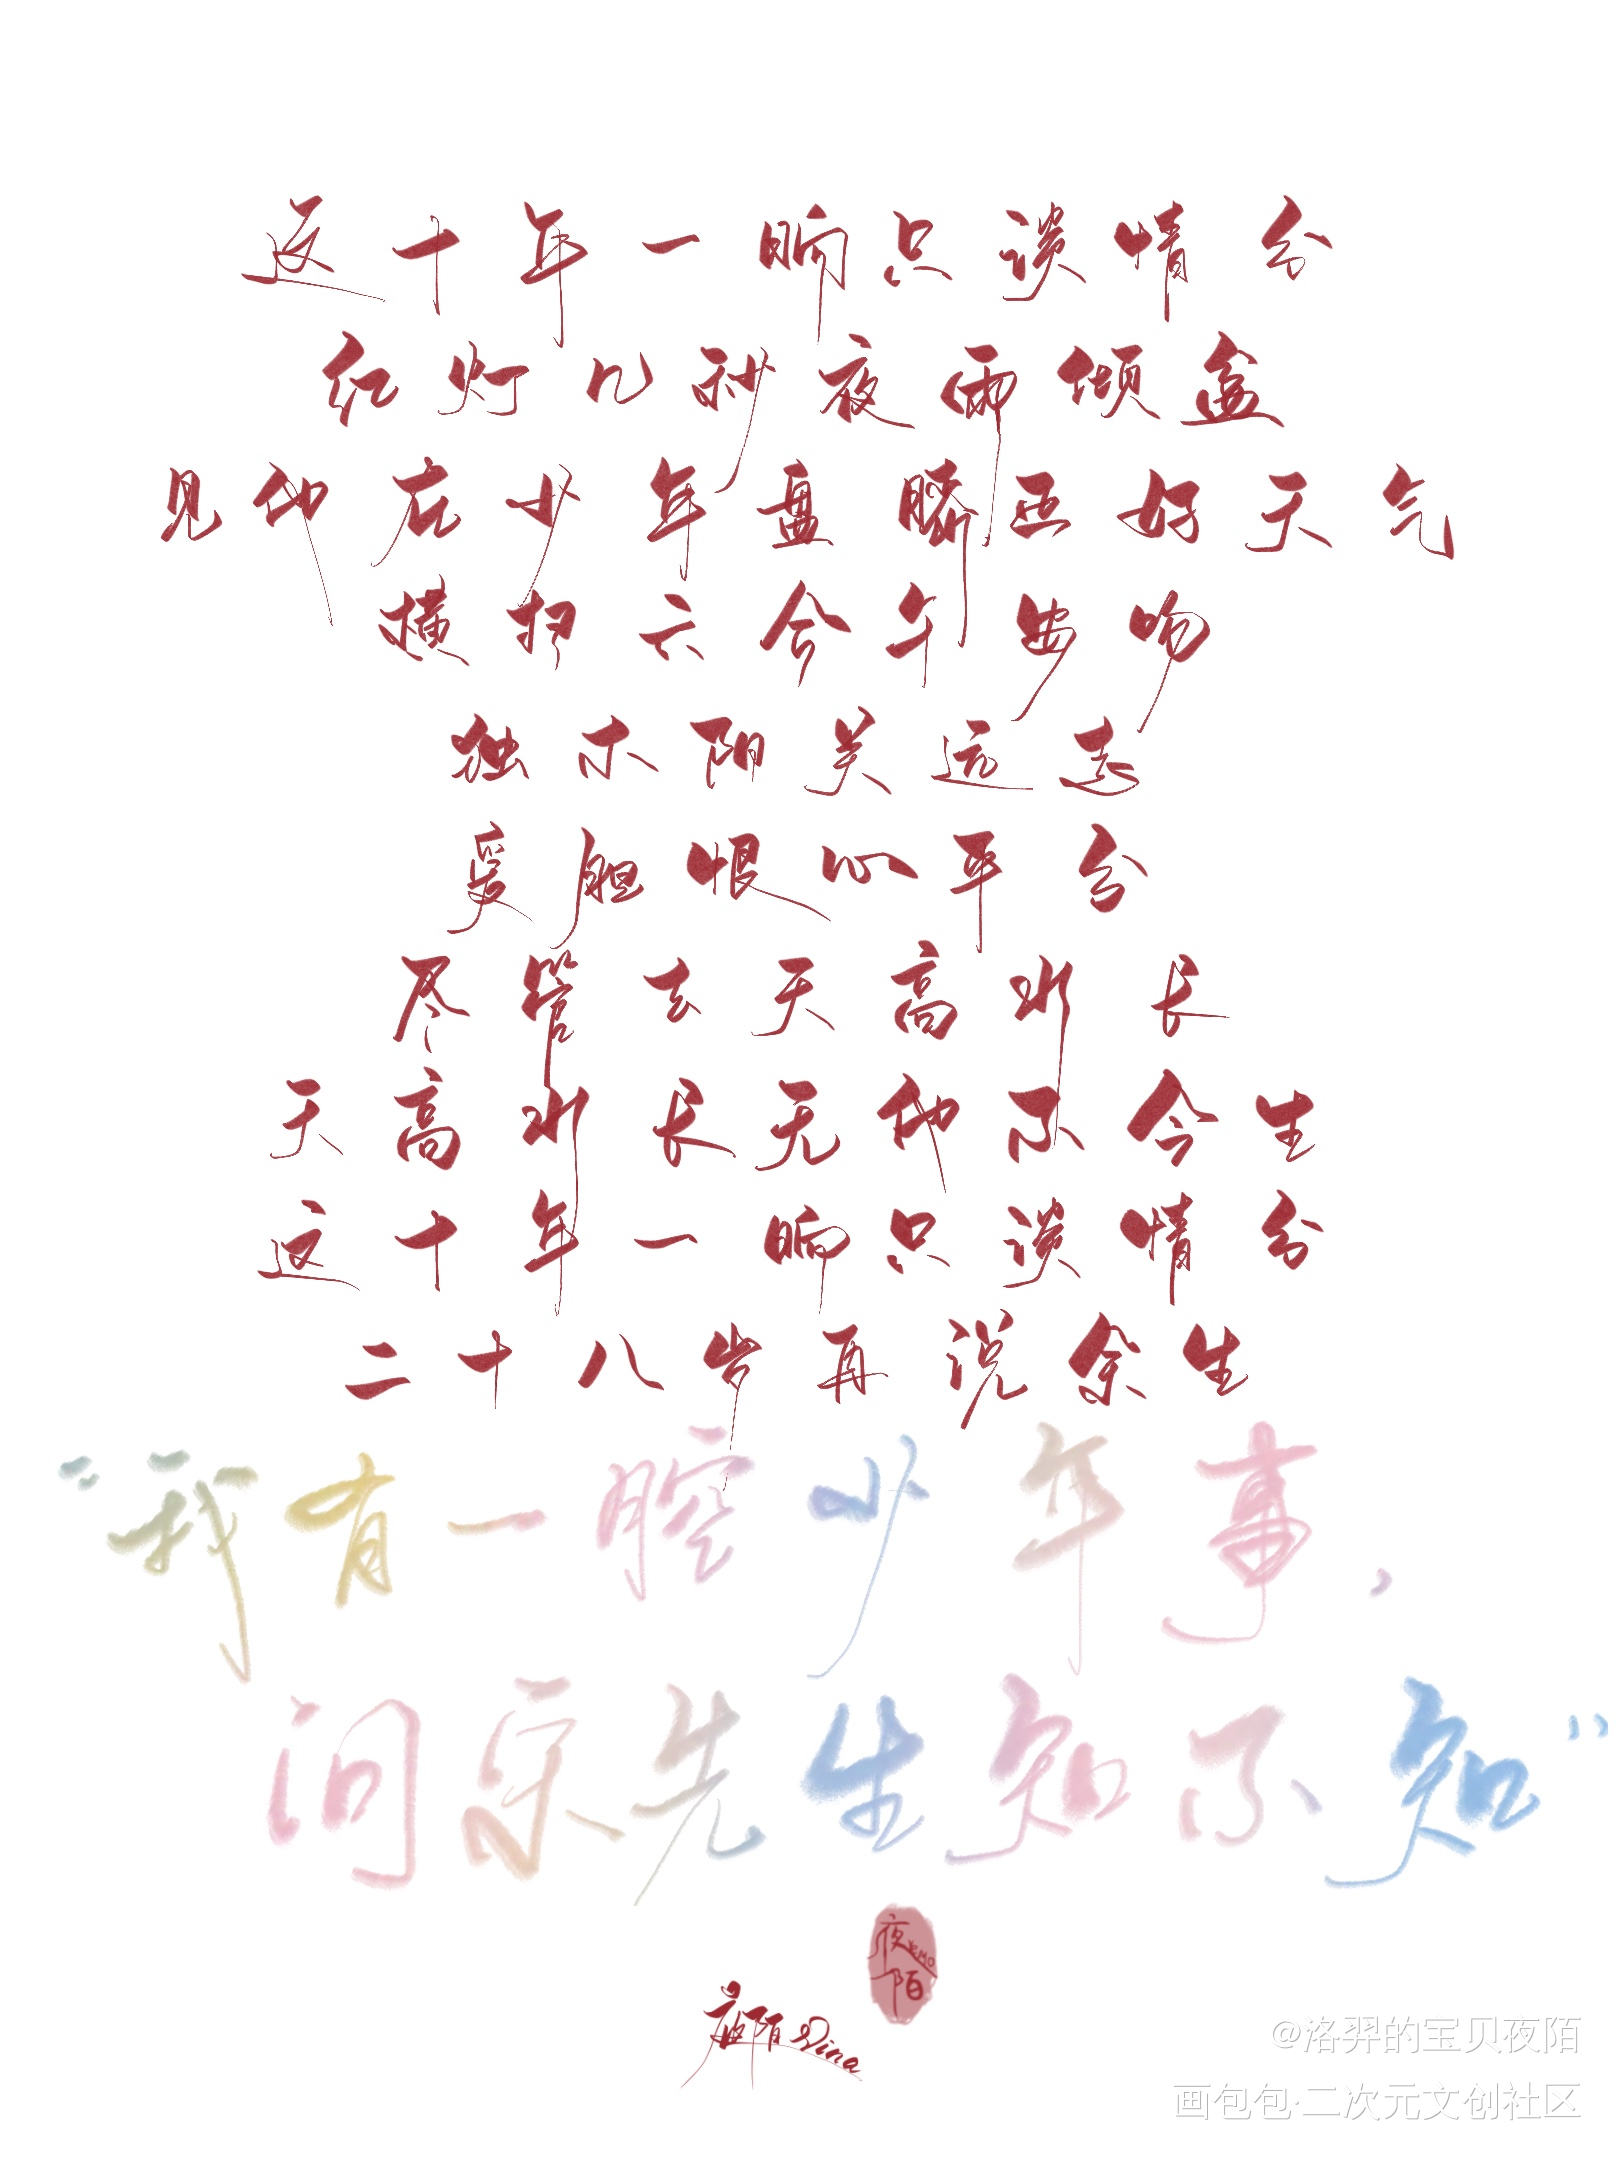 这十年一晌只谈情分
红灯几秒夜雨倾盆
见他在少年盘脐正好天气
横扫六合午安吻
独木阳关远志
爱胆恨心平分
尽管去天高水长
天高水长无他不会生
这十年一晌只谈情分
二十八岁再说余生
“我有一腔少年事，
问宋先生知不知”
夜陌
YEMO
夜陌 Dina
@洛羿的宝贝夜陌
画包包·二次元文创社区